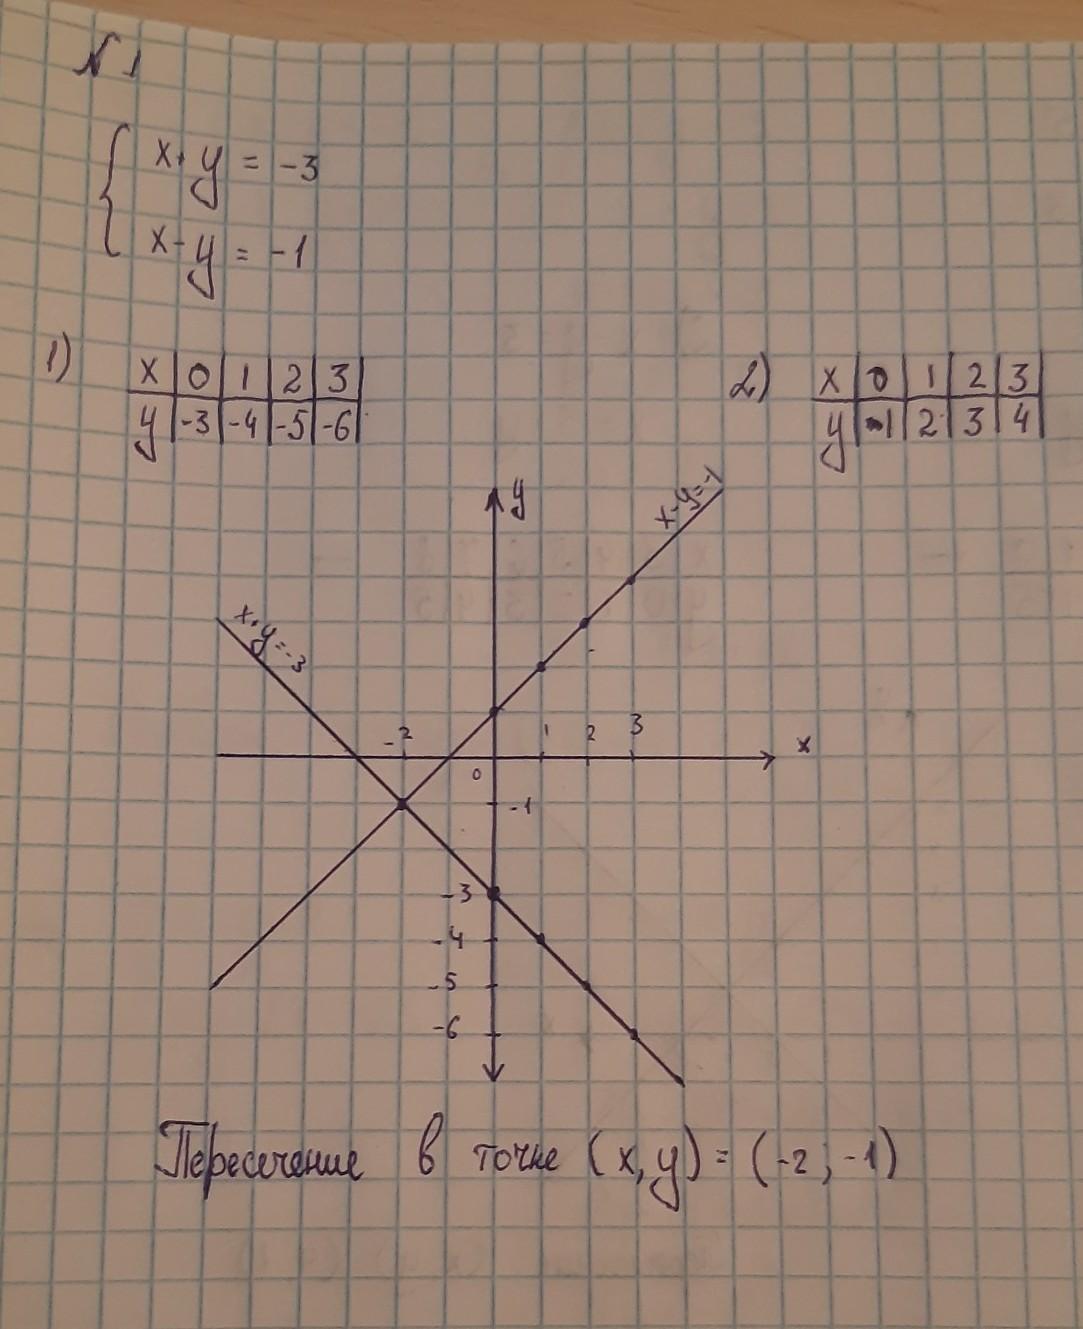 N 1
x+y = -3
x-y = -1
1) x 0 1 2 3
y -3 -4 -5 -6
2) x 0 1 2 3
y 1 2 3 4
y
x-y=-1
x+y=-3
-2 1 2 3 x
0
-1
-3
-4
-5
-6
Пересечение в точке (x, y) = (-2 ; -1)